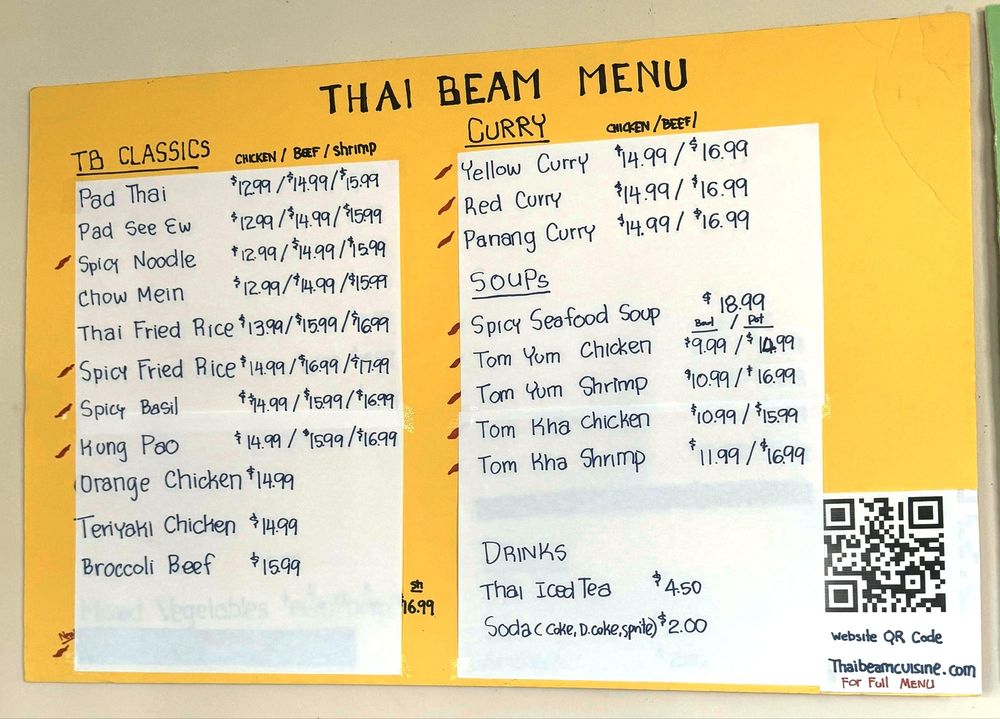 THAI BEAM MENU
TB CLASSICS CHICKEN / BEEF / shrimp
Pad Thai $12.99/$14.99/$15.99
Pad See Ew $12.99/$14.99/$15.99
Spicy Noodle $12.99/$14.99/$15.99
Chow Mein $12.99/$14.99/$15.99
Thai Fried Rice $13.99/$15.99/$16.99
Spicy Fried Rice $14.99/$16.99/$17.99
Spicy Basil $14.99/$15.99/$16.99
Kung Pao $14.99/$15.99/$16.99
Orange Chicken $14.99
Teriyaki Chicken $14.99
Broccoli Beef $15.99
Mixed Vegetables
sh
16.99
CURRY CHICKEN /BEEF/
Yellow Curry $14.99/$16.99
Red Curry $14.99/$16.99
Panang Curry $14.99/$16.99
SOUPs
Spicy Seafood Soup $18.99
Bowl / Pot
Tom Yum Chicken $9.99/$14.99
Tom Yum Shrimp $10.99/$16.99
Tom Kha Chicken $10.99/$15.99
Tom Kha Shrimp $11.99/$16.99
DRINKS
Thai Iced Tea $4.50
Soda (Coke, D.coke, sprite) $2.00
Website QR Code
Thaibeamcuisine.com
FOR FUll MENU